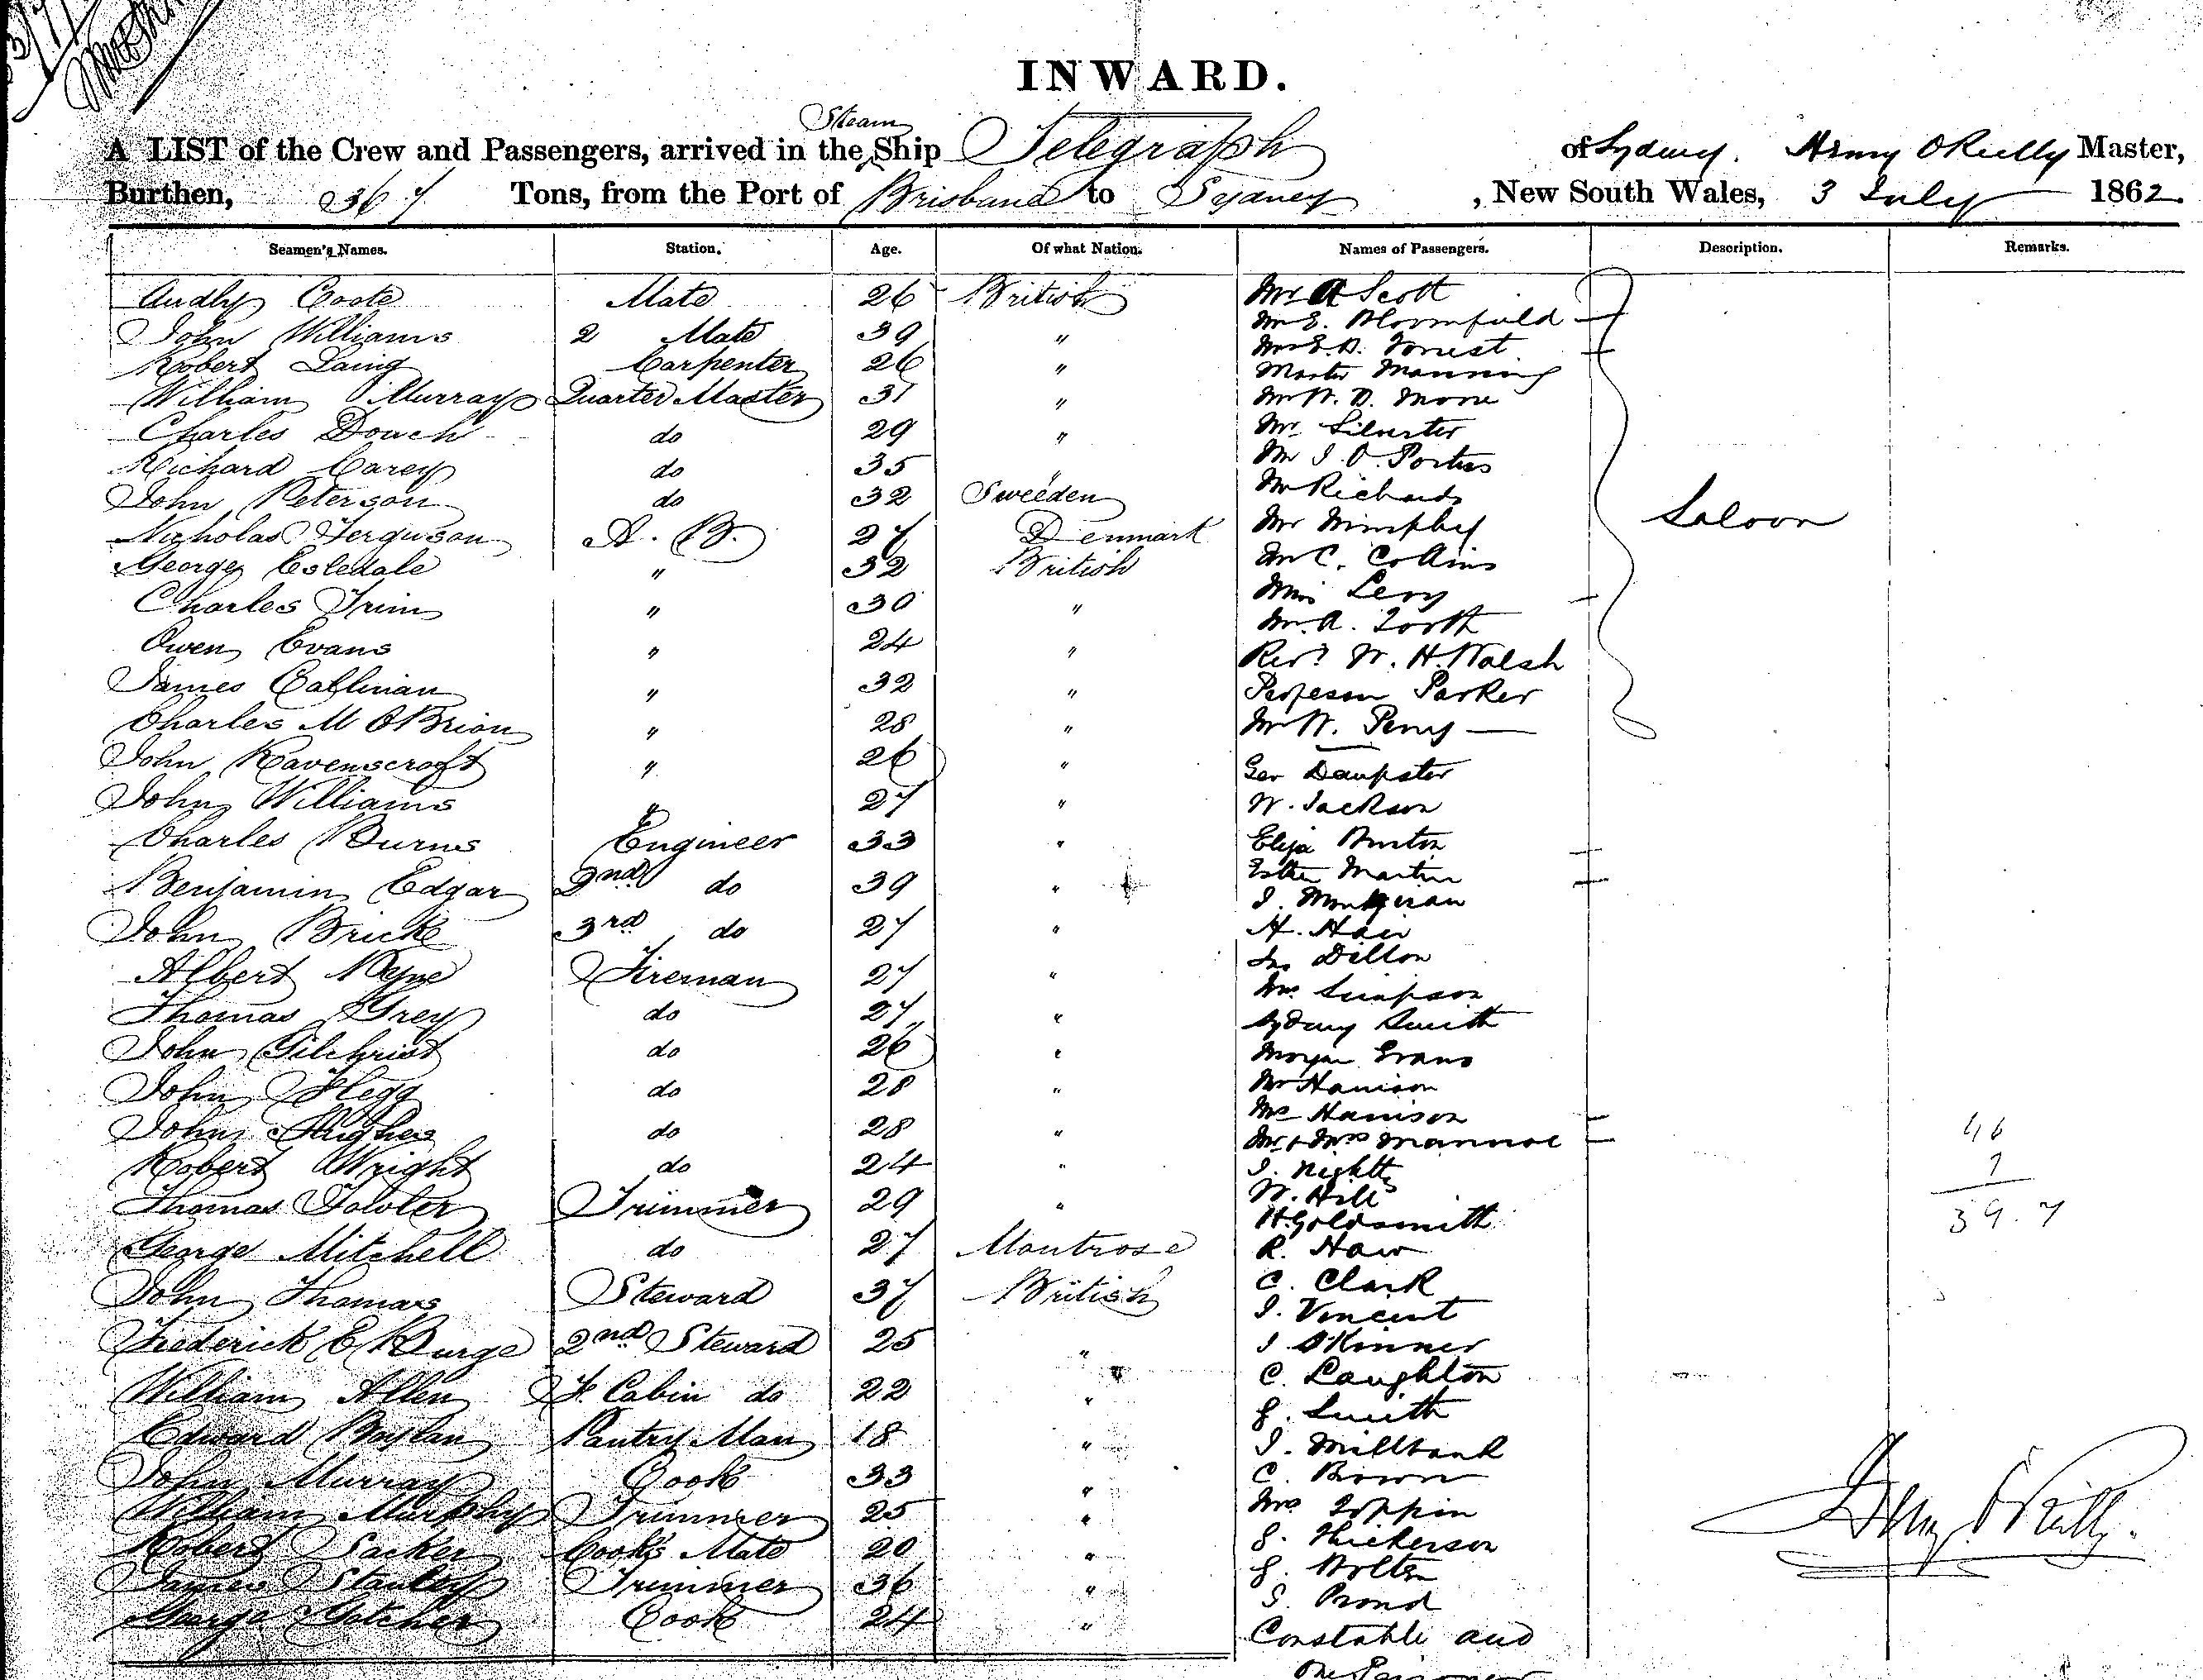 INWARD.
Steam
A LIST of the Crew and Passengers, arrived in the Ship Telegraph of Sydney. Henry O'Reilly Master,
Burthen, 367 Tons, from the Port of Brisbane to Sydney, New South Wales, 3 July 1862.
Seamen's Names. Station. Age. Of what Nation. Names of Passengers. Description. Remarks.
Audly Coote Mate 26 British Mr A Scott
John Williams 2 Mate 39 " Mr E. Bloomfield
Robert Laing Carpenter 26 " Mrs E. A. Forrest
William Murray Quarter Master 31 " Master Manning
Charles Douch do 29 " Mr W. D. Moore
Richard Carey do 35 " Mr Silvester
John Peterson do 32 Sweeden Mr J. O. Porters
Nicholas Ferguson A. B. 27 Denmark Mr Richards
George Esledale " 32 British Mr Saloon
Charles Trim " 30 " Mr C. Collins
Owen Evans " 24 " Miss Levy
James Callinan " 32 " Mr. R. Tooth
Charles M OBrion " 28 " Revd W. H. Walsh
John Ravenscroft " 26 " Professor Parker
John Williams " 27 " Mr W. Perry
Charles Burns Engineer 33 " Geo Dampster
Benjamin Edgar 2nd do 39 " W. Jackson
John Brick 3rd do 27 " Eliza Burton
Albert Fireman 27 " Esther Martin
Thomas Grey do 27 " J.
John Gilchrist do 26 " H. Hair
John Flegg do 28 " Jno Dillon
John Hughes do 28 " Mr. Simpson
Robert Wright do 24 " Sydney Smith
Thomas Fowler Trimmer 29 " Morgan Evans
George Mitchell do 27 Montrose Mr Harrison
John Thomas Steward 37 British Mrs Harrison
Frederick E Burge 2nd Steward 25 " Mr & Mrs 46
William Allen F. Cabin do 22 " J. 7
Edward Boylan Pantry Man 18 " W. Hill 39. 7
John Murray Cook 33 " H Goldsmith
William Murphy Trimmer 25 " R. Haw
Robert Sacker Cook's Mate 20 " C. Clark
James Stanley Trimmer 36 " J. Vincent
George Cook 24 " J. Skinner
C. Laughton
G. Smith
J. Millbank
C. Brown
Mrs Toppin
G. Hickerson
G. Bolton
S. Bond
Constable and
One Prisoner
Henry O'Reilly.